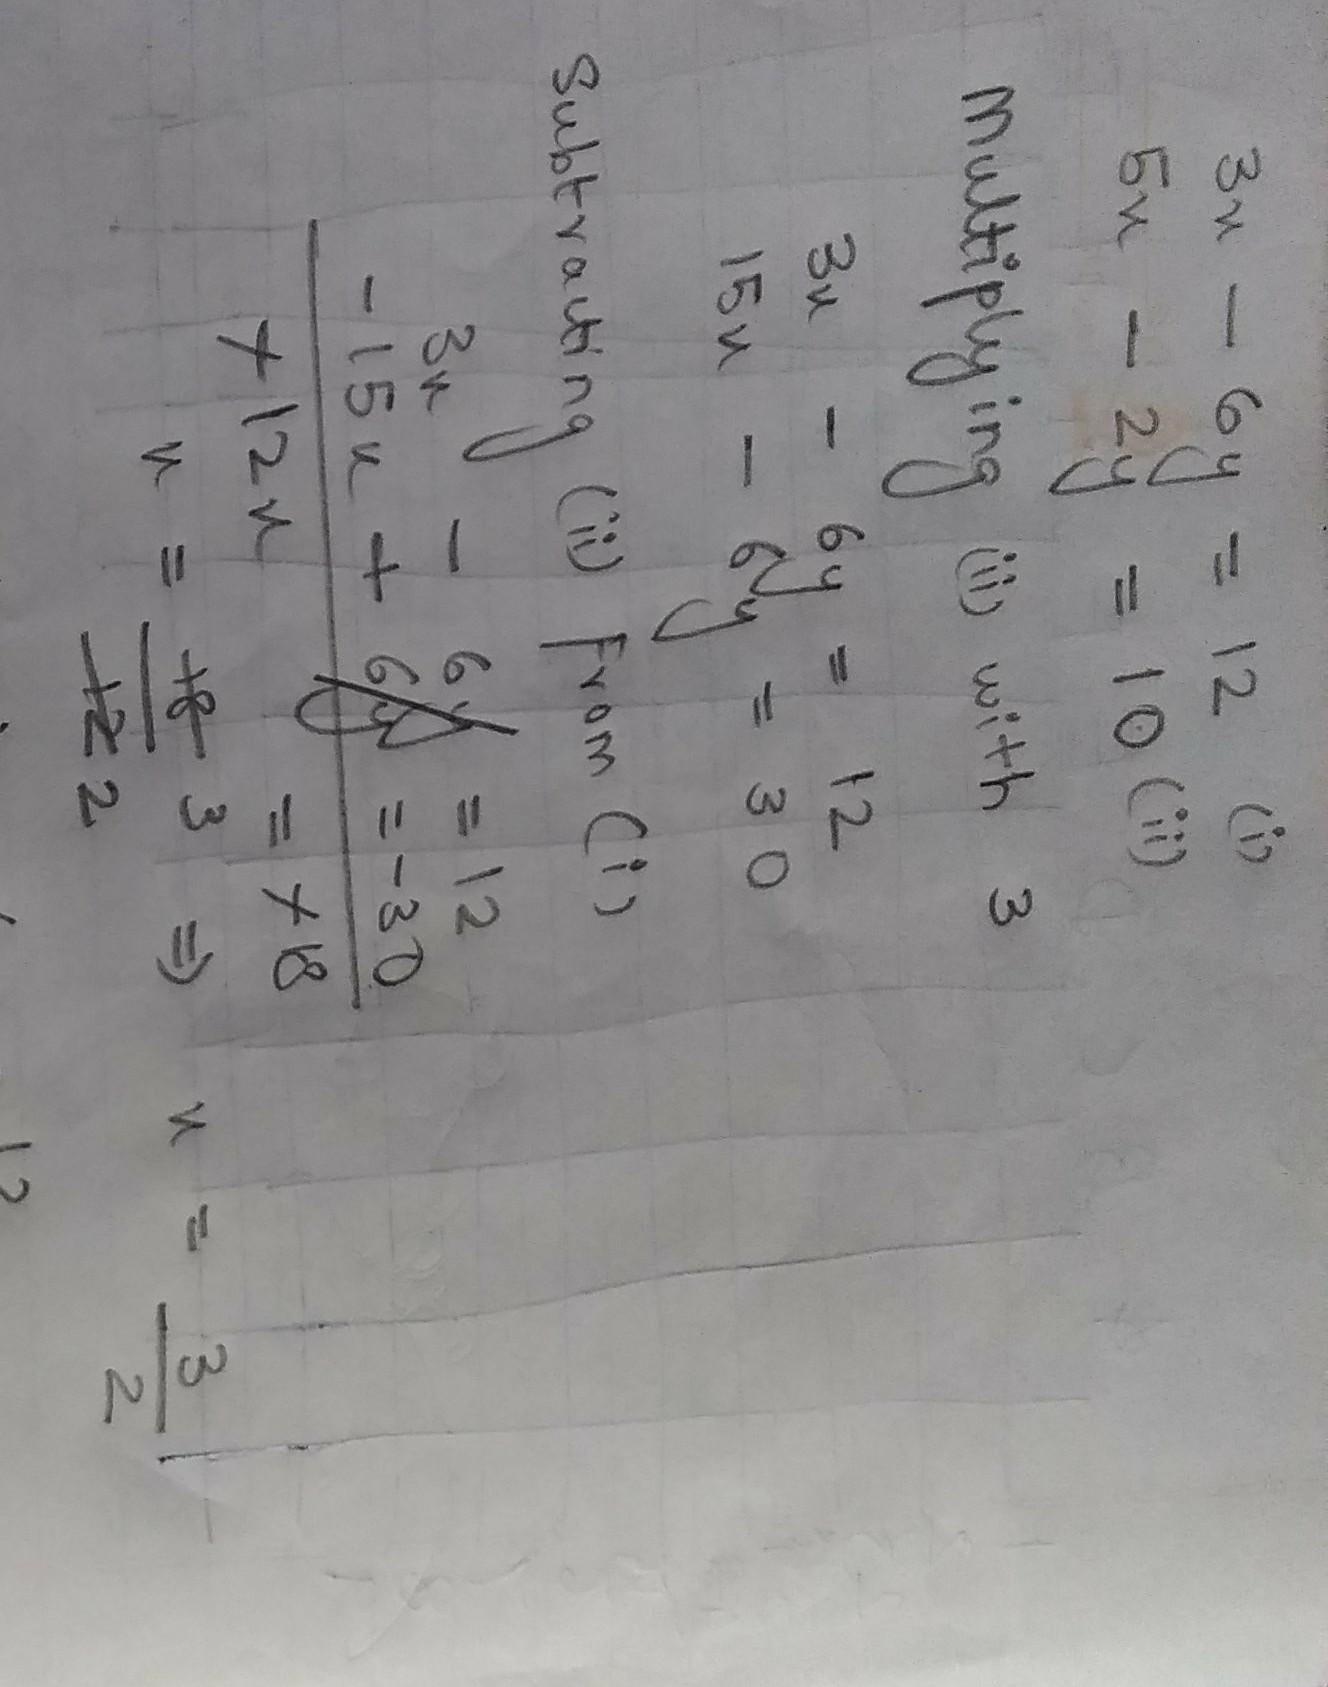 3x - 6y = 12 (i)
5x - 2y = 10 (ii)
Multiplying (ii) with 3
3x - 6y = 12
15x - 6y = 30
Subtracting (ii) from (i)
3x - 6y = 12
-15x + 6y = -30
+12x = +18
x = 18 3 ⇒ x = 3
12 2 2
12